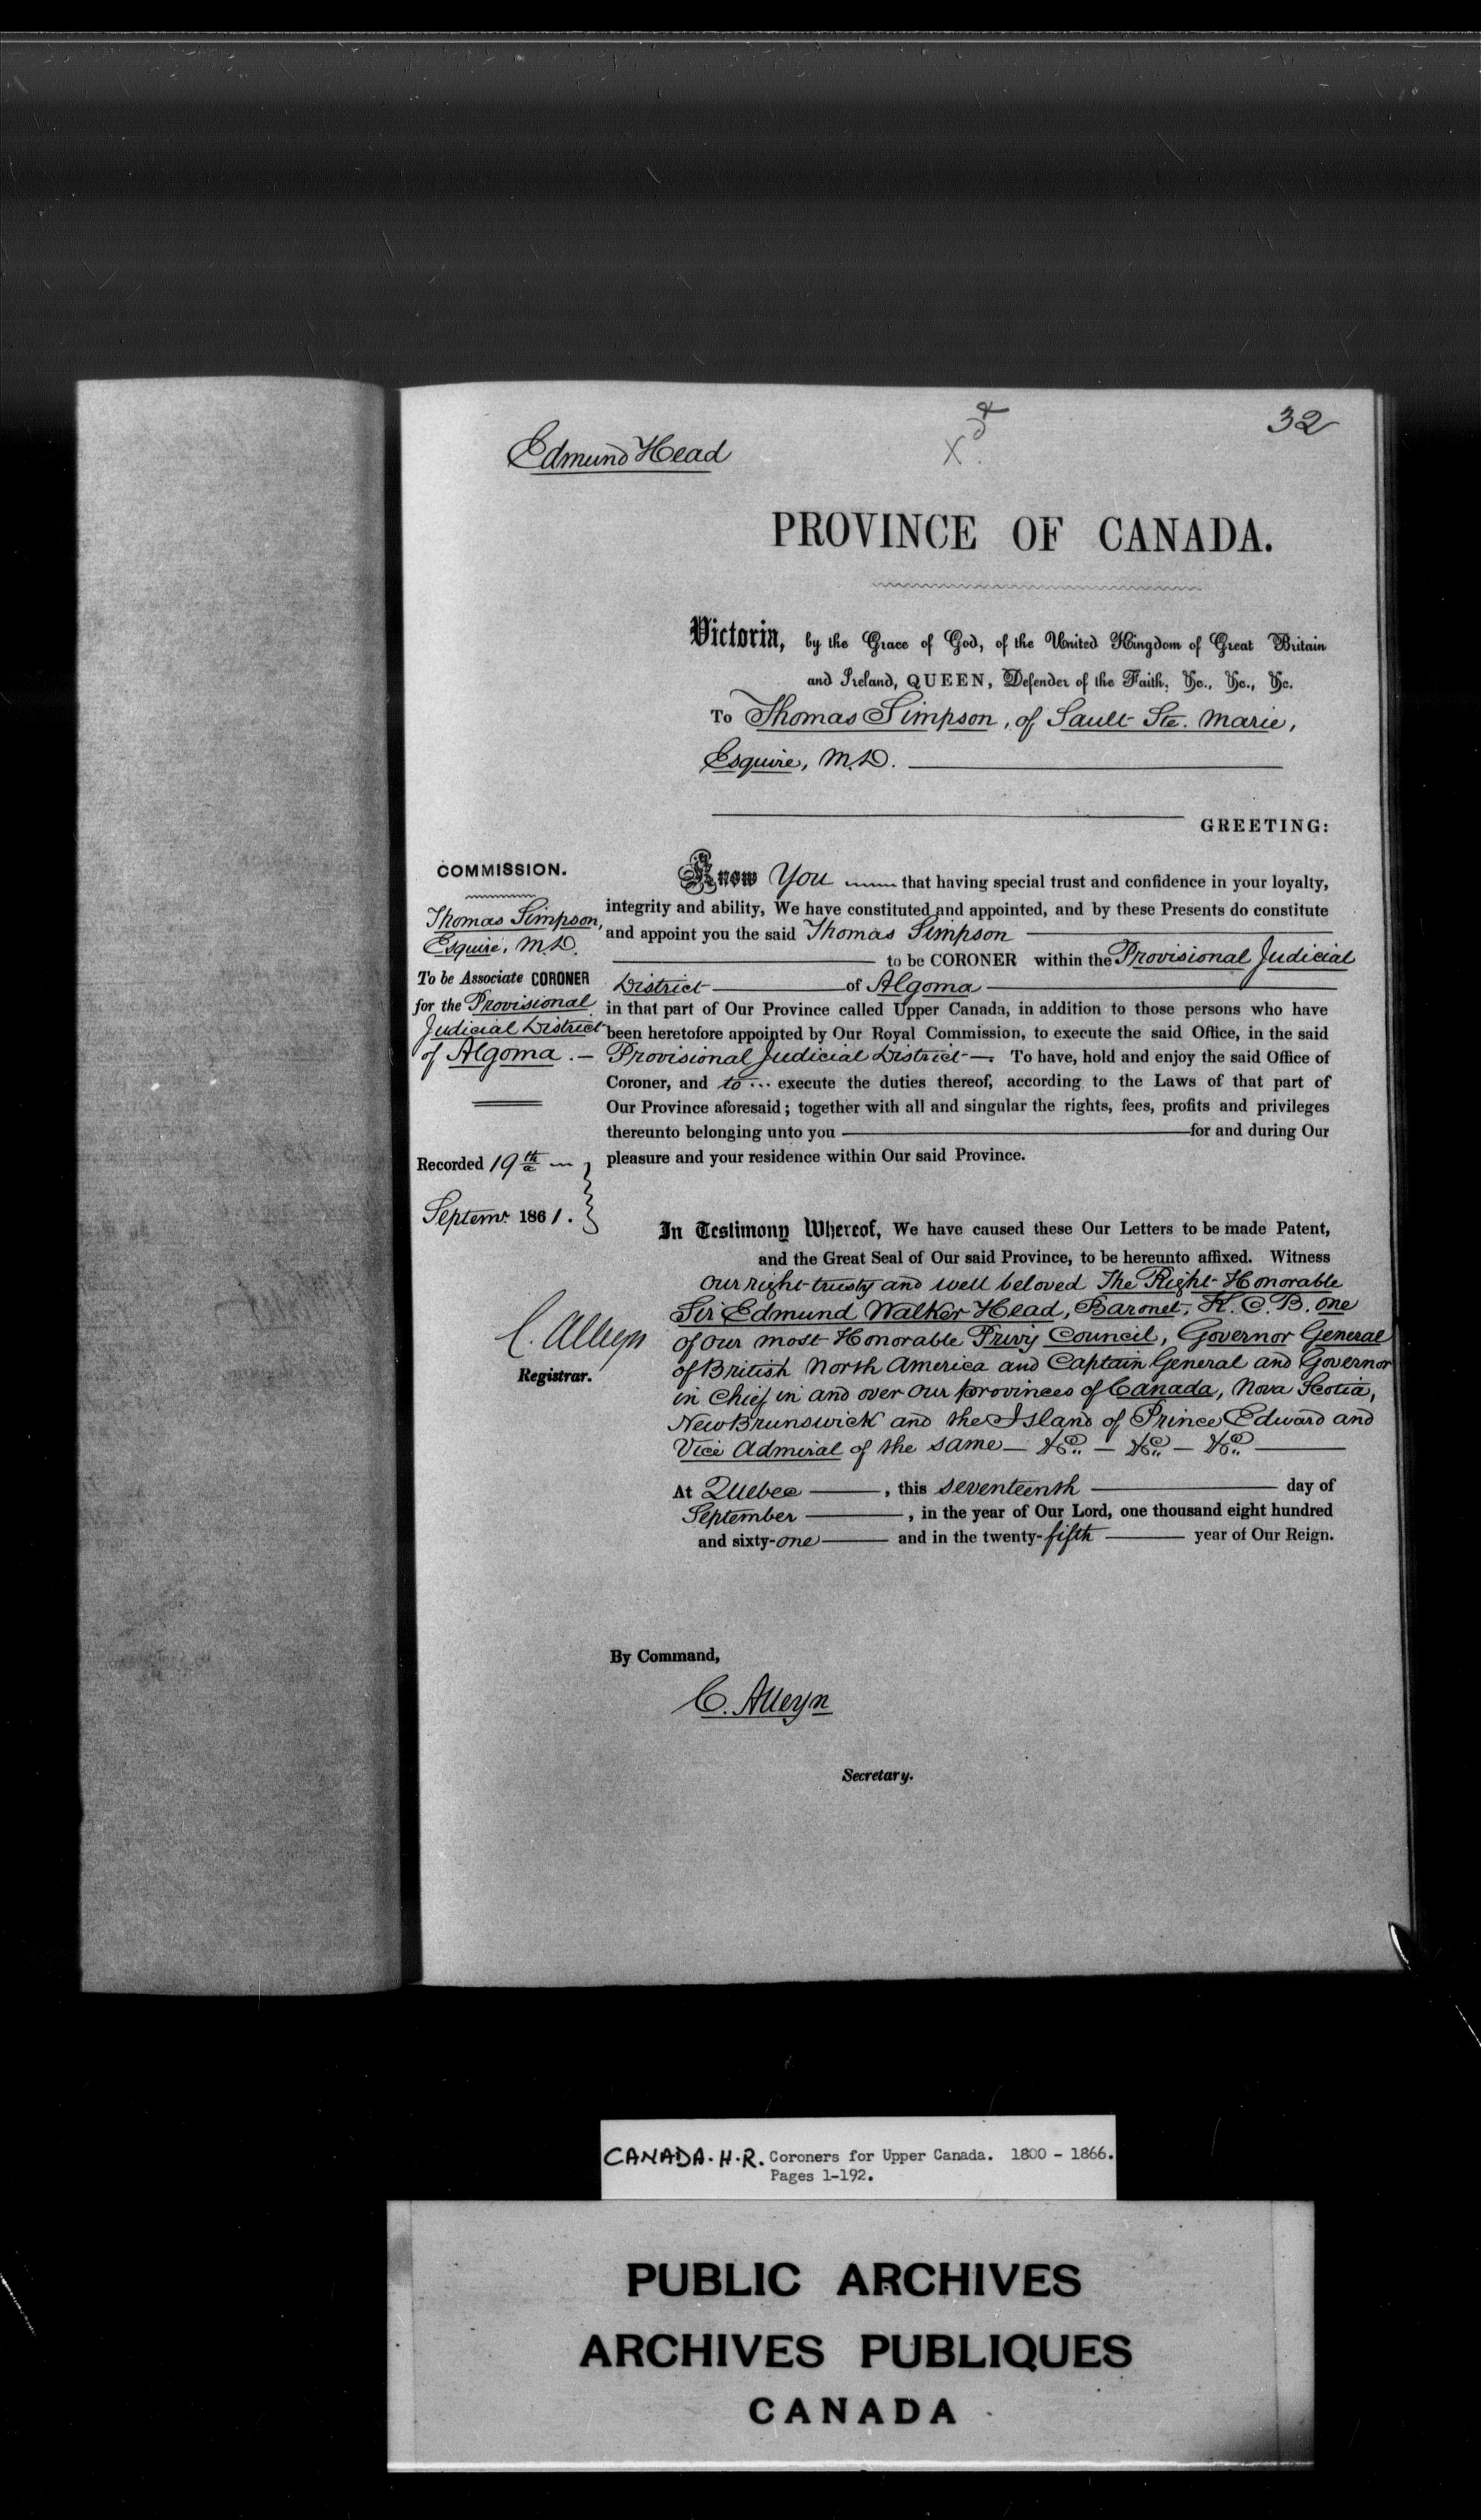 32
Edmund Head
PROVINCE OF CANADA.
Victoria, by the Grace of God, of the United Kingdom of Great Britain
and Ireland, QUEEN, Defender of the Faith, &c., &c., &c.
To Thomas Simpson, of Sault Ste. Marie,
Esquire, M.D.
GREETING:
COMMISSION.
Thomas Simpson,
Esquire, M.D.
To be Associate CORONER
for the Provisional
Judicial District
of Algoma. —
Recorded 19th
Septemr. 1861.
C. Alleyn
Registrar.
Know You that having special trust and confidence in your loyalty,
integrity and ability, We have constituted and appointed, and by these Presents do constitute
and appoint you the said Thomas Simpson
to be CORONER within the Provisional Judicial
District of Algoma
in that part of Our Province called Upper Canada, in addition to those persons who have
been heretofore appointed by Our Royal Commission, to execute the said Office, in the said
Provisional Judicial District —. To have, hold and enjoy the said Office of
Coroner, and to ... execute the duties thereof, according to the Laws of that part of
Our Province aforesaid; together with all and singular the rights, fees, profits and privileges
thereunto belonging unto you for and during Our
pleasure and your residence within Our said Province.
In Testimony Whereof, We have caused these Our Letters to be made Patent,
and the Great Seal of Our said Province, to be hereunto affixed. Witness
our right trusty and well beloved The Right Honorable
Sir Edmund Walker Head, Baronet, K.C.B. one
of our most Honorable Privy Council, Governor General
of British North America and Captain General and Governor
in Chief in and over our provinces of Canada, Nova Scotia,
New Brunswick and the Island of Prince Edward and
Vice Admiral of the same — &c. — &c. — &c.
At Quebec, this seventeenth day of
September, in the year of Our Lord, one thousand eight hundred
and sixty-one and in the twenty-fifth year of Our Reign.
By Command,
C. Alleyn
Secretary.
CANADA. H.R. Coroners for Upper Canada. 1800 - 1866.
Pages 1-192.
PUBLIC ARCHIVES
ARCHIVES PUBLIQUES
CANADA